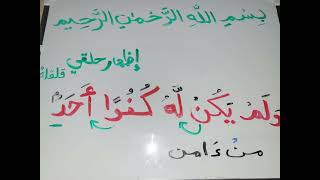 بِسْمِ اللَّهِ الرَّحْمٰنِ الرَّحِيمِ
إظهار حلقي
قلقلة
وَلَمْ يَكُنْ لَّهُ كُفُوًا أَحَدٌ
مَنْ ءَامن